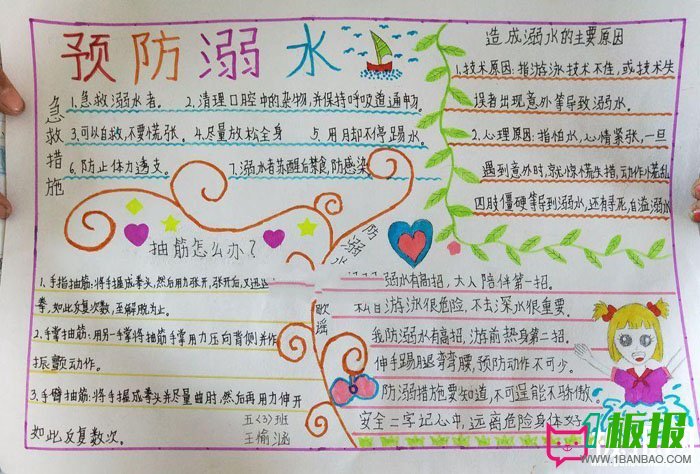 预防溺水
急救措施
1.急救溺水者。 2.清理口腔中的杂物,并保持呼吸道通畅。
3.可以自救,不要慌张。 4.尽量放松全身 5.用脚不停踢水。
6.防止体力透支。 7.溺水者苏醒后禁食,防感染
造成溺水的主要原因
1.技术原因:指游泳技术不佳,或技术失
误者出现意外等导致溺水。
2.心理原因:指怕水,心情紧张,一旦
遇到意外时,就惊慌失措,动作慌乱
四肢僵硬等导到溺水,还有寻死自溢溺水
抽筋怎么办?
1.手指抽筋:将手握成拳头,然后用力张开,张开后,又迅速
拳,如此反复次数,至解脱为止。
2.手掌抽筋:用另一手掌将抽筋手掌用力压向背侧并作
振颤动作。
3.手臂抽筋:将手握成拳头并尽量曲肘,然后再用力伸开
如此反复数次。
五(3)班
王榆涵
防溺水
歌谣
溺水有高招,大人陪伴第一招。
私自游泳很危险,不去深水很重要。
我防溺水有高招,游前热身第二招。
伸手踢腿弯弯腰,预防动作不可少。
防溺措施要知道,不可逞能不骄傲
安全二字记心中,远离危险身体好
板报
WWW.1BANBAO.COM